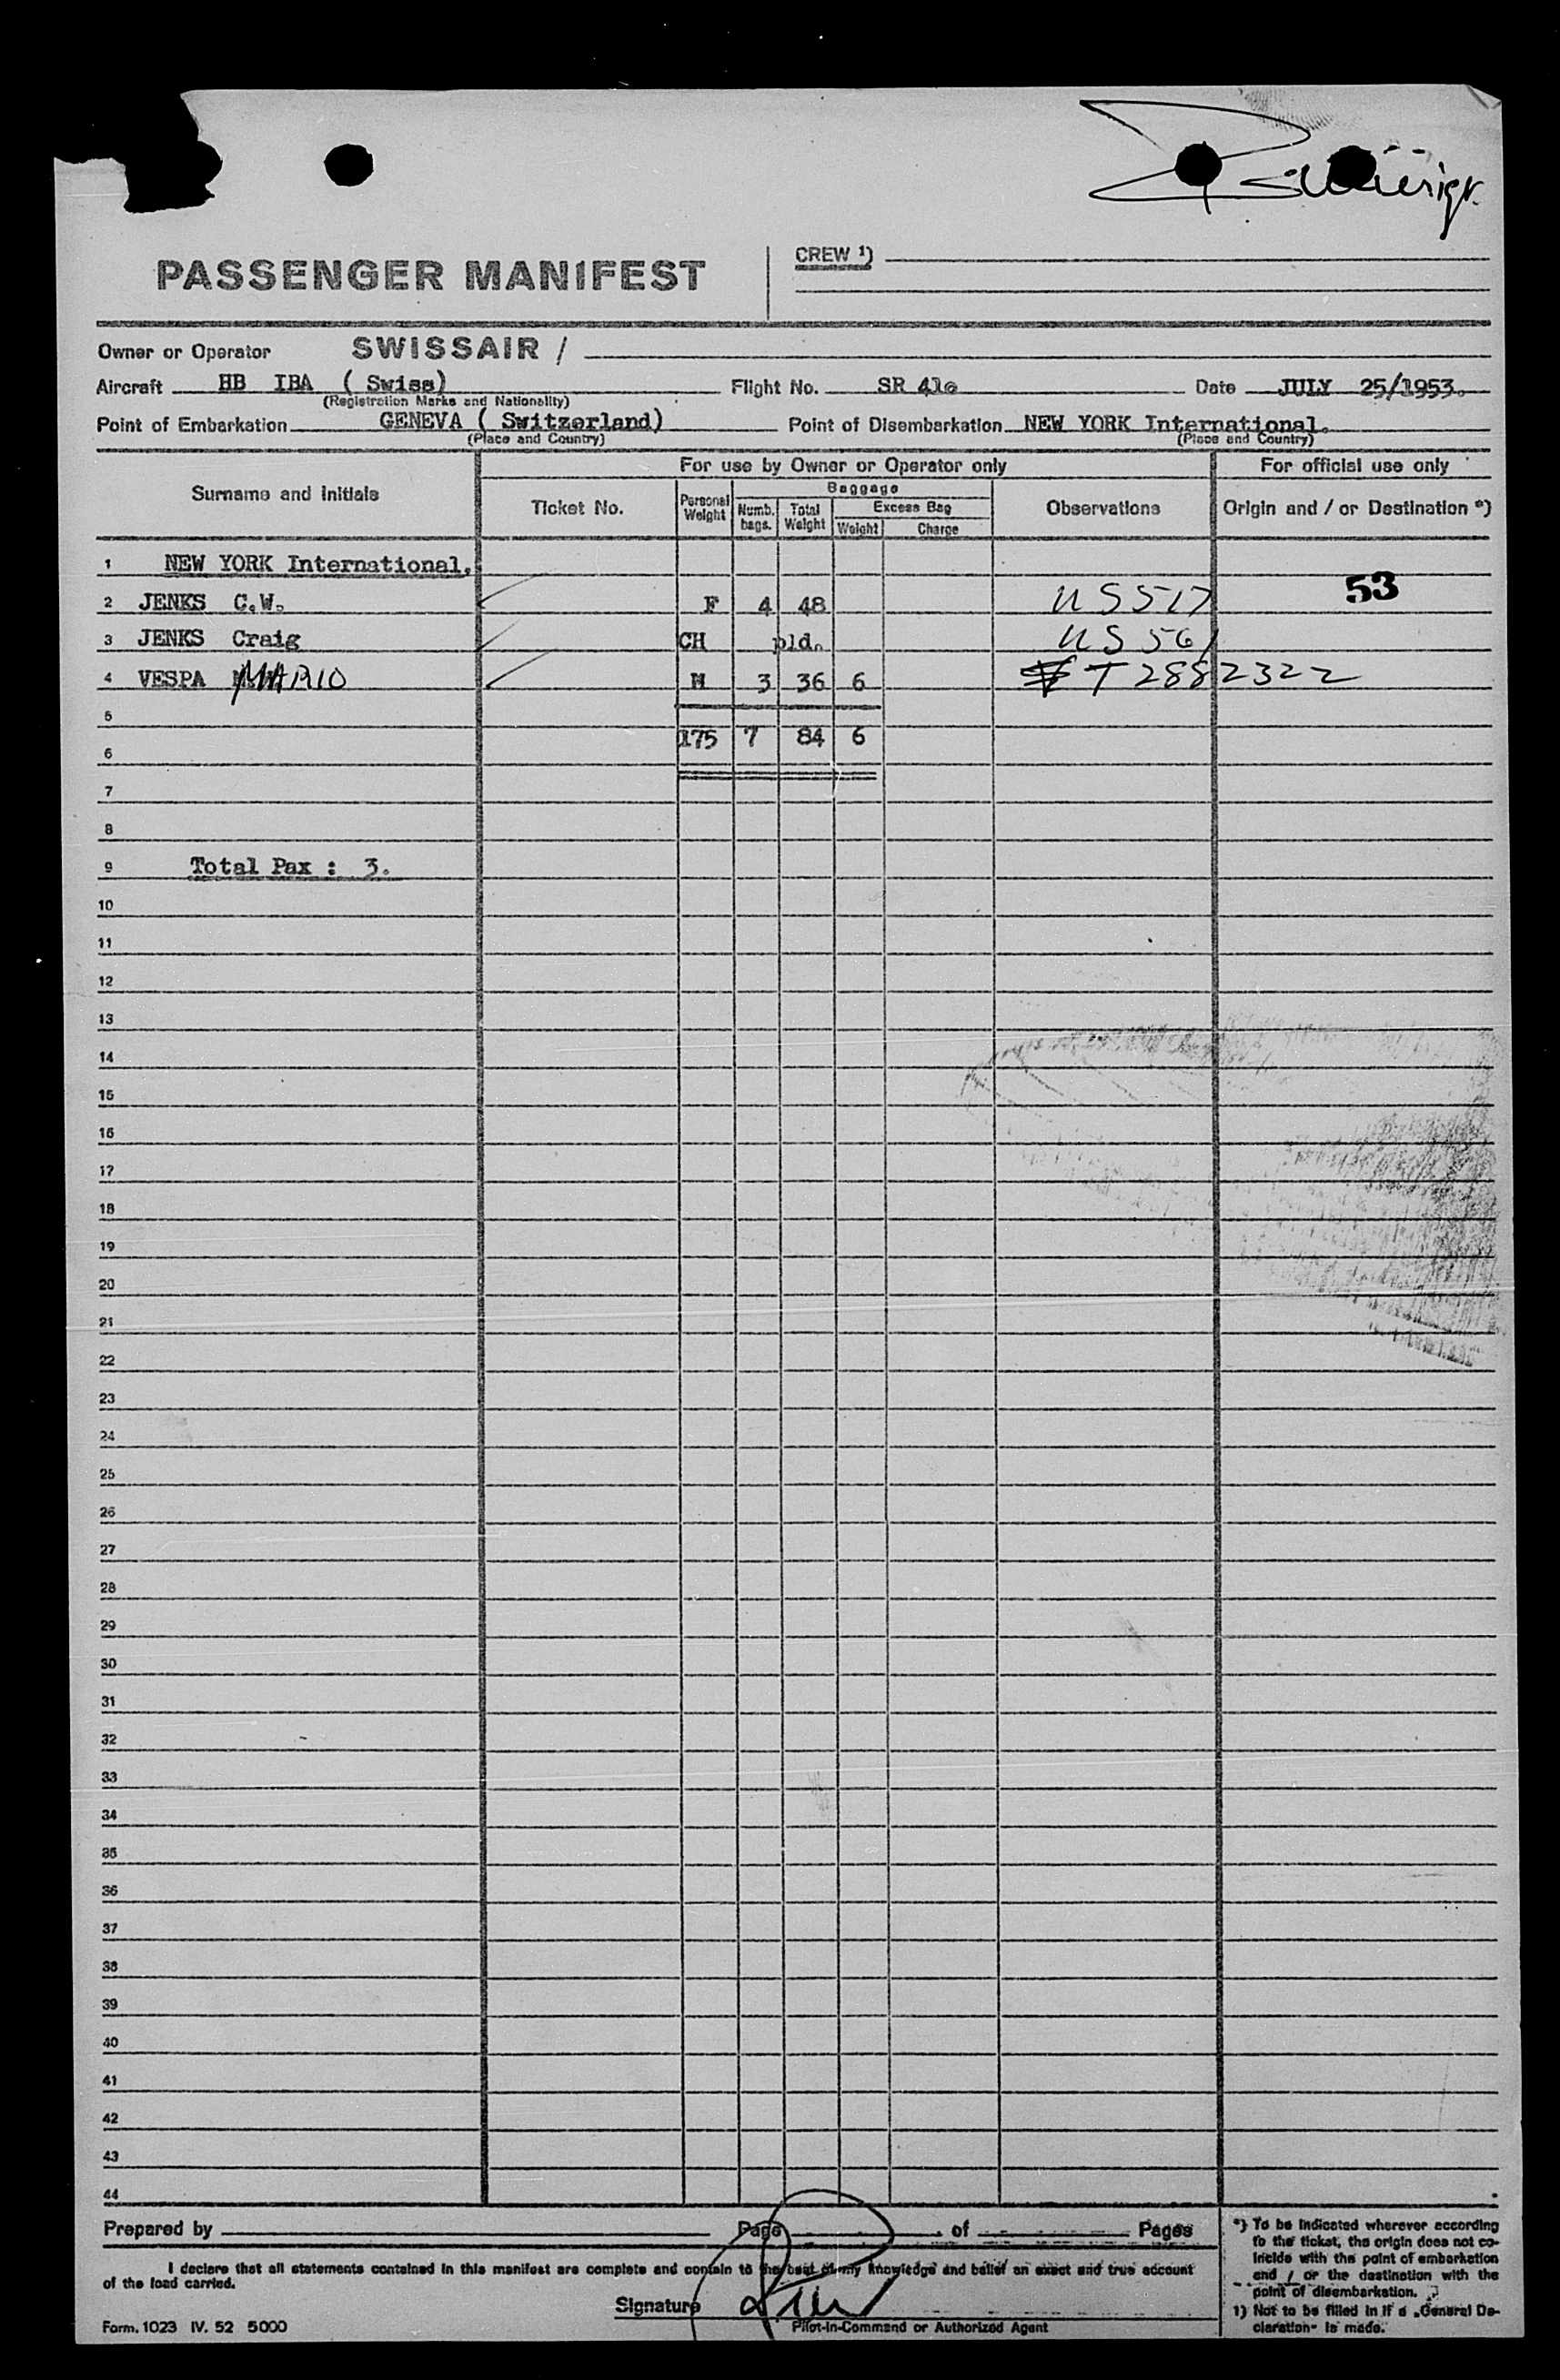 PASSENGER MANIFEST
CREW ¹)
Owner or Operator SWISSAIR /
Aircraft HB IBA ( Swiss) Flight No. SR 410 Date JULY 25/1953.
(Registration Marks and Nationality)
Point of Embarkation GENEVA ( Switzerland) Point of Disembarkation NEW YORK International.
(Place and Country) (Place and Country)
For use by Owner or Operator only For official use only
Surname and Initials Ticket No. Personal Weight Baggage Observations Origin and / or Destination *)
Numb. bags. Total Weight Excess Bag
Weight Charge
1 NEW YORK International.
53
2 JENKS C.W. F 4 48 US 517
3 JENKS Craig CH pld. US 561
4 VESPA MARIO M 3 36 6 T 2882322
5
175 7 84 6
6
7
8
9 Total Pax : 3.
10
11
12
13
14
15
16
17
18
19
20
21
22
23
24
25
26
27
28
29
30
31
32
33
34
35
36
37
38
39
40
41
42
43
44
Prepared by Page of Pages
I declare that all statements contained in this manifest are complete and contain to the best of my knowledge and belief an exact and true account
of the load carried.
Signature
Pilot-in-Command or Authorized Agent
Form. 1023 IV. 52 5000
*) To be indicated wherever according
to the ticket, the origin does not co-
incide with the point of embarkation
and / or the destination with the
point of disembarkation.
1) Not to be filled in if a „General De-
claration" is made.